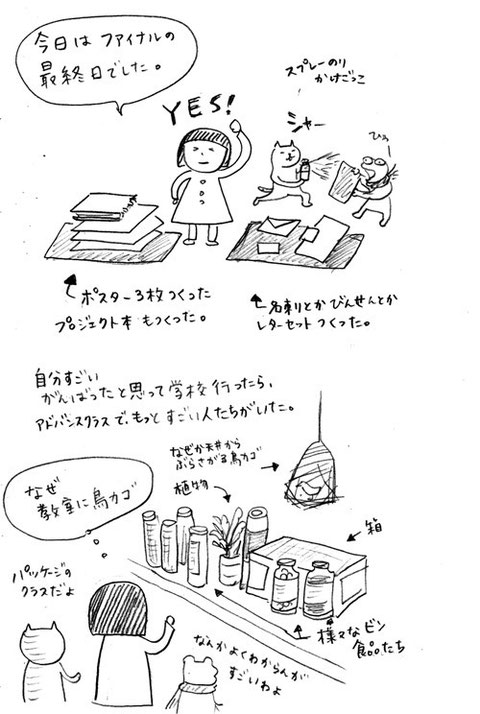 今日は ファイナルの
最終日でした。
YES!
スプレーのり
かけごっこ
シャー
ひゃー
ポスター3枚つくった
プロジェクト本 もつくった。
名刺とか びんせんとか
レターセット つくった。
自分すごい
がんばったと思って学校行ったら、
アドバンスクラスで、もっと すごい人たちがいた。
なぜか天井から
ぶらさがる鳥カゴ
植物
なぜ
教室に鳥カゴ
箱
パッケージの
クラスだよ
様々なビン
食品たち
なんかよくわからんが
すごいわよ